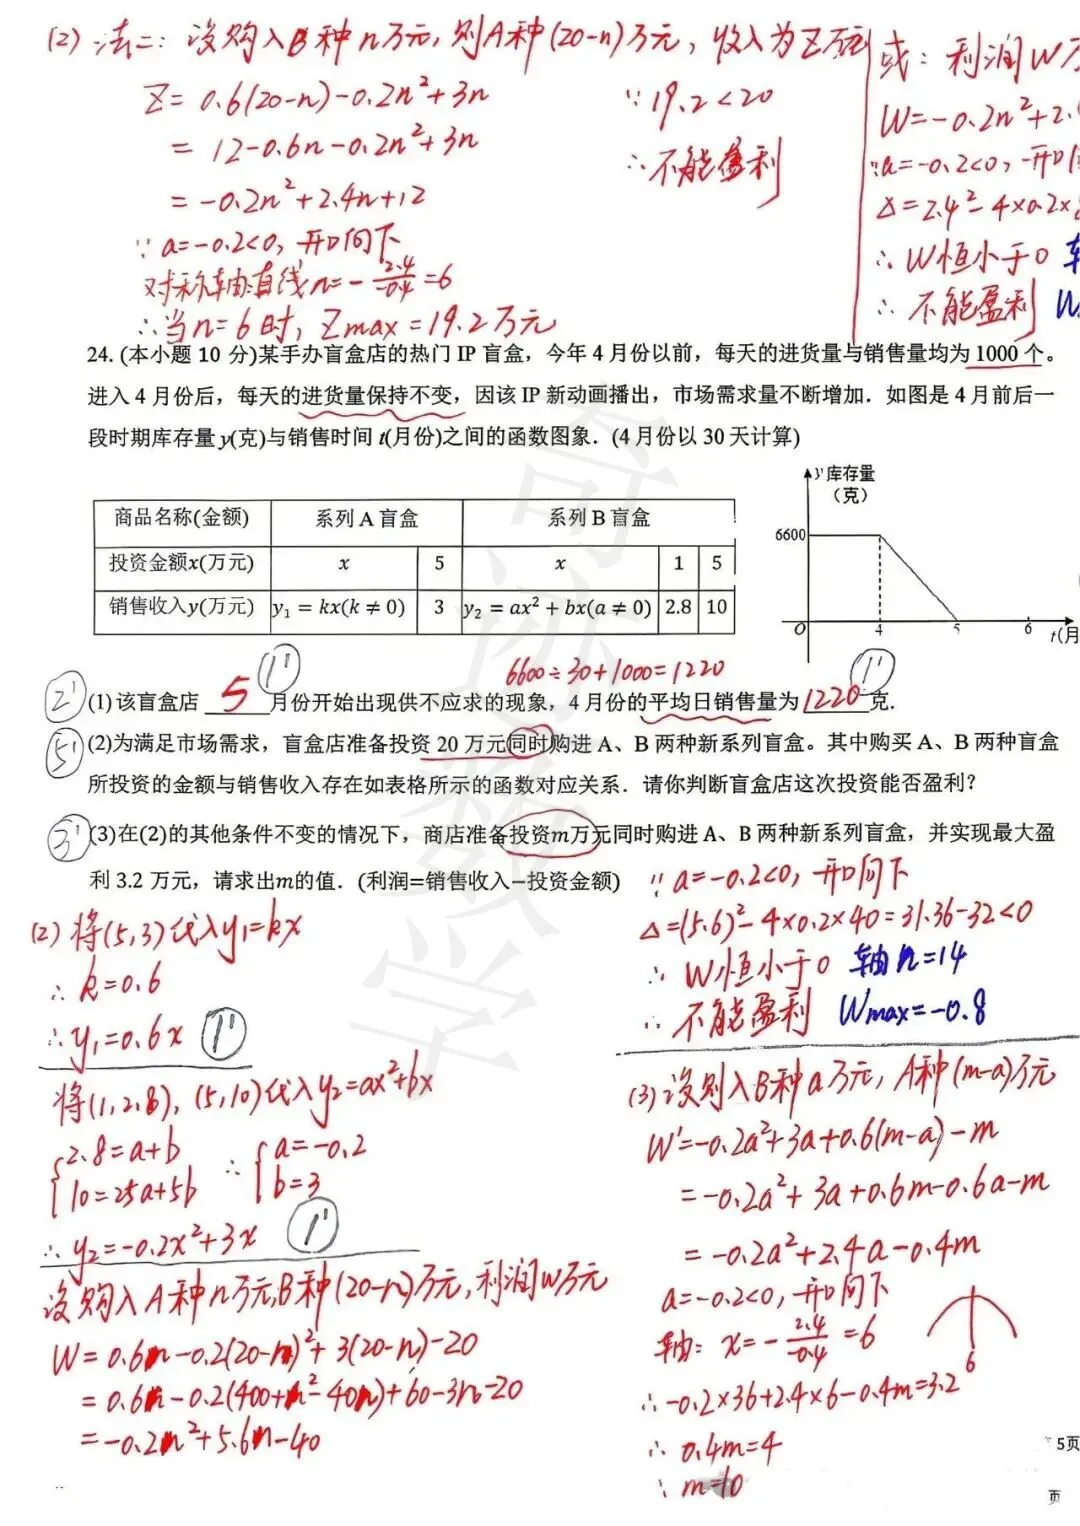 (2) 法二: 设购入B种n万元, 则A种(20-n)万元, 收入为Z万元
Z= 0.6(20-n)-0.2n²+3n
= 12-0.6n-0.2n²+3n
= -0.2n²+2.4n+12
∵ a=-0.2<0, 开口向下
对称轴:直线n=-2.4/-0.4=6
∴当n=6时, Zmax=19.2万元
∵19.2<20
∴不能盈利
或: 利润W万
W=-0.2n²+2.
∵a=-0.2<0, 开口
△=2.4²-4×0.2×
∴ W恒小于0 轴
∴ 不能盈利 W
24. (本小题 10 分)某手办盲盒店的热门 IP 盲盒，今年 4 月份以前，每天的进货量与销售量均为 1000 个。
进入 4 月份后，每天的进货量保持不变，因该 IP 新动画播出，市场需求量不断增加．如图是 4 月前后一
段时期库存量 y(克)与销售时间 t(月份)之间的函数图象．(4 月份以 30 天计算)
商品名称(金额) 系列 A 盲盒 系列 B 盲盒
投资金额x(万元) x 5 x 1 5
销售收入y(万元) y₁ = kx(k ≠ 0) 3 y₂ = ax² + bx(a ≠ 0) 2.8 10
y 库存量
（克）
6600
O 4 5 6 t(月
6600÷30+1000=1220
2' (1)该盲盒店 5 月份开始出现供不应求的现象，4 月份的平均日销售量为 1220 克．
1' 1'
5' (2)为满足市场需求，盲盒店准备投资 20 万元同时购进 A、B 两种新系列盲盒。其中购买 A、B 两种盲盒
所投资的金额与销售收入存在如表格所示的函数对应关系．请你判断盲盒店这次投资能否盈利？
3' (3)在(2)的其他条件不变的情况下，商店准备投资m万元同时购进 A、B 两种新系列盲盒，并实现最大盈
利 3.2 万元，请求出m的值．(利润=销售收入−投资金额)
(2) 将(5,3)代入y₁=kx
∴ k=0.6
∴y₁=0.6x 1'
将(1,2.8), (5,10)代入y₂=ax²+bx
{2.8=a+b ∴ {a=-0.2
{10=25a+5b {b=3
∴ y₂=-0.2x²+3x 1'
设购入A种n万元,B种(20-n)万元, 利润W万元
W= 0.6n-0.2(20-n)²+3(20-n)-20
= 0.6n-0.2(400+n²-40n)+60-3n-20
= -0.2n²+5.6n-40
∵ a=-0.2<0, 开口向下
△=(5.6)²-4×0.2×40=31.36-32<0
∴ W恒小于0 轴n=14
∴ 不能盈利 Wmax=-0.8
(3)设购入B种a万元, A种(m-a)万元
W'=-0.2a²+3a+0.6(m-a)-m
=-0.2a²+3a+0.6m-0.6a-m
= -0.2a²+2.4a-0.4m
a=-0.2<0, 开口向下
轴: x=-2.4/-0.4=6
6
∴-0.2×36+2.4×6-0.4m=3.2
∴ 0.4m=4
∴ m=10
5页
页